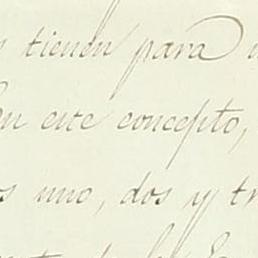 tienen para
en este concepto,
os uno, dos y tr